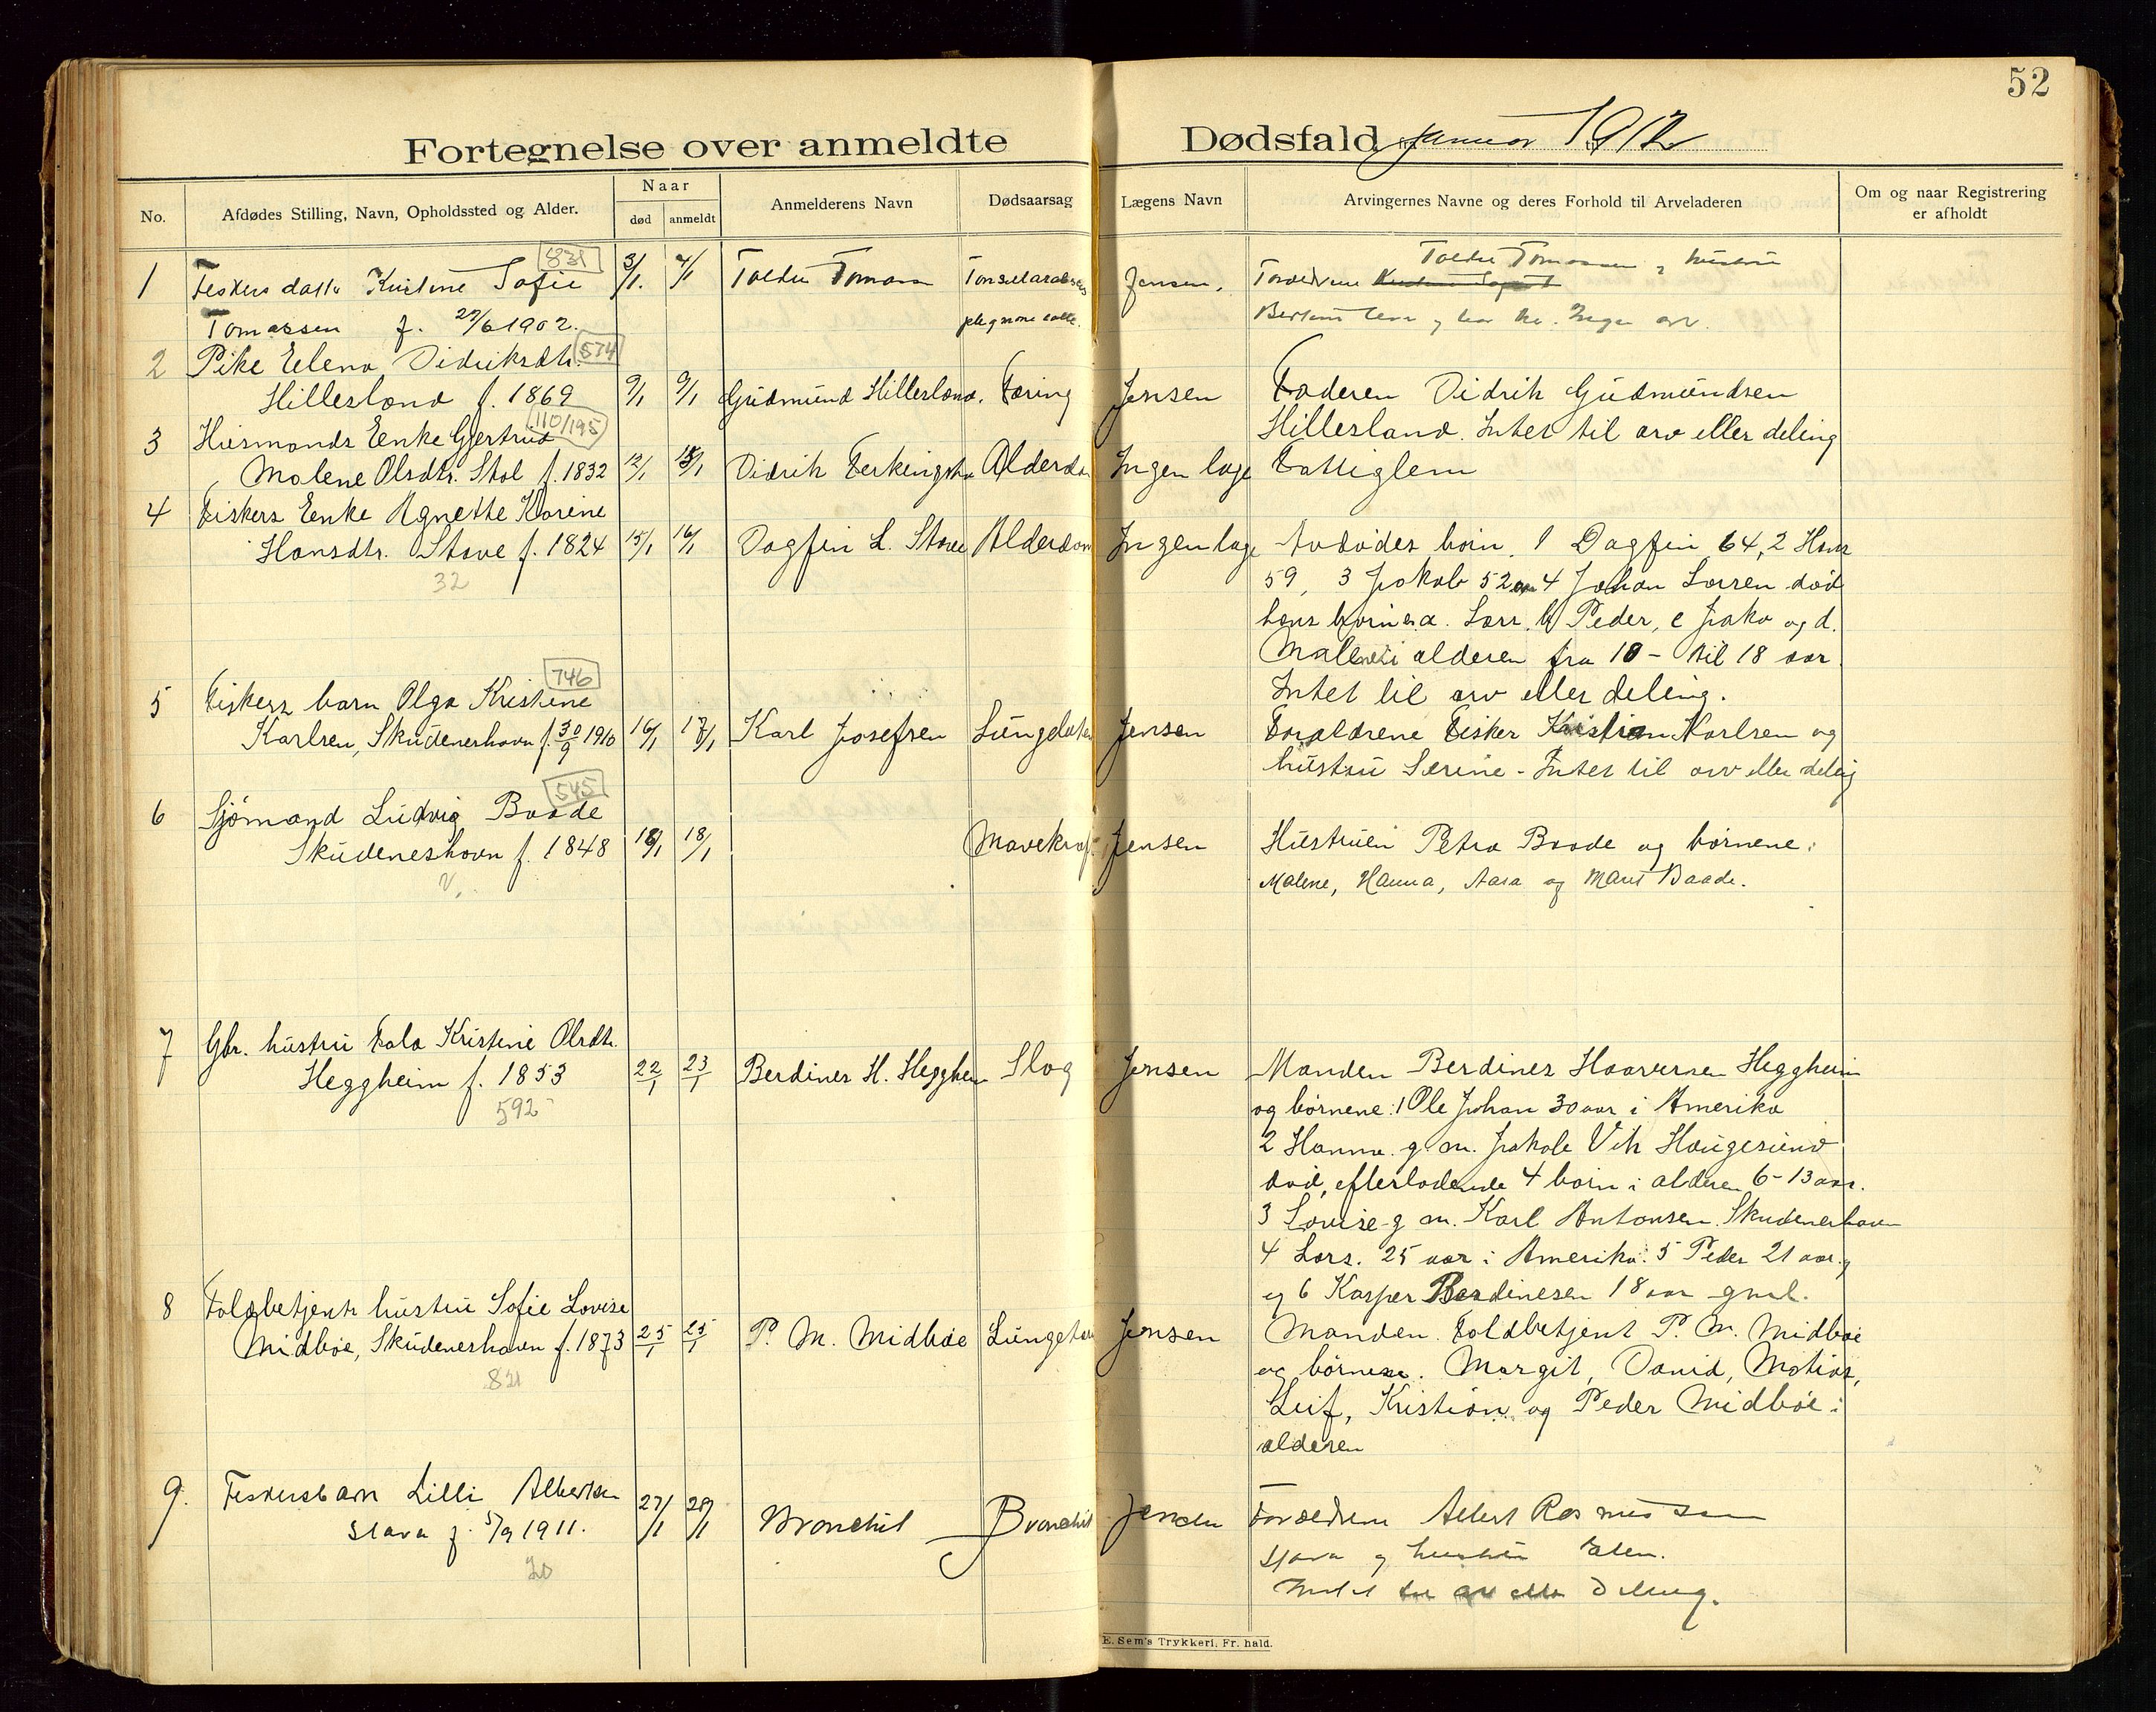 52
Fortegnelse over anmeldte Dødsfald Januar 1912
No.
Afdødes Stilling, Navn, Opholdssted og Alder.
Naar
død
anmeldt
Anmelderens Navn
Dødsaarsag
Lægens Navn
Arvingernes Navne og deres Forhold til Arveladeren
Om og naar Registrering
er afholdt
831
1 Sofie 3/1. Jensen,
Tomassen f. 1902.
574
2 Pike Elena Didriksdtr.
Hillesland f. 1869 9/1 9/1 Gudmund Hillesland. Tæring Jensen Faderen Didrik Gudmundsen
Hillesland. Intet til arv eller deling
110/195
3 Husmands Enke Gjertrud
Malene Olsdtr. Stol f. 1832 12/1 Didrik Ferkingsta Alderdo Ingen læge Fattiglem
4 Fiskers Enke Agnethe Karine
Hansdtr. Stave f. 1824 15/1 16/1 Dagfin L. Stave Alderdom Ingen læge Avdødes børn, 1 Dagfin 64, 2 Hans
32
59, 3 Jakob 52 4 Johan Larsen død
hans børn a. Lars, b Peder, c Jako og d.
Malene i alderen fra 10 - til 18 aar
Intet til arv eller deling.
746
5 Fiskers barn Olga Kristine
Karlsen, Skudeneshavn f. 30/9 1910 16/1 17/1 Karl Josefsen Lungebeten Jensen Forældrene Fisker Kristian Karlsen og
hustru Serine - Intet til arv eller deling
545
6 Sjømand Ludvig Baade
Skudeneshavn f. 1848 18/1 18/1 Mavekræf. Jensen Hustruen Petra Baade og børnene:
Malene, Hanna, Aasa og Marit Baade.
7 Gbr. hustru Tala Kristine Olsdtr.
Heggheim f. 1853 22/1 23/1 Berdines H. Hegghem Slag Jensen Manden Berdines Haaversen Heggheim
592
og børnene: 1 Ole Johan 30 aar i Amerika
2 Hanna g. m. Jakob Vik Haugesund
død, efterladende 4 børn i alderen 6-13 aar.
3 Lovise g m. Karl Antonsen Skudeneshavn
4 Lars. 25 aar i Amerika. 5 Peder 21 aar.
og 6 Kasper Berdinesen 18 aar gml.
8 Toldbetjents hustru Sofie Lovise
Midbøe, Skudeneshavn f. 1873 25/1 25/1 P. M. Midbøe Lungetu Jensen Manden. Toldbetjent P. M. Midbøe
821
og børnene. Margit, David, Matias,
Leif, Kristian og Peder Midbøe i
alderen
9. Fiskersbarn Lilli Albertsen
Stava f. 5/9 1911. 27/1 28/1 Bronchit Bronchit Jensen Forældrene Albert Rasmussen
Stava og hustru Elen.
20
Intet til arv eller deling.
E. Sem's Trykkeri, Fr. hald.